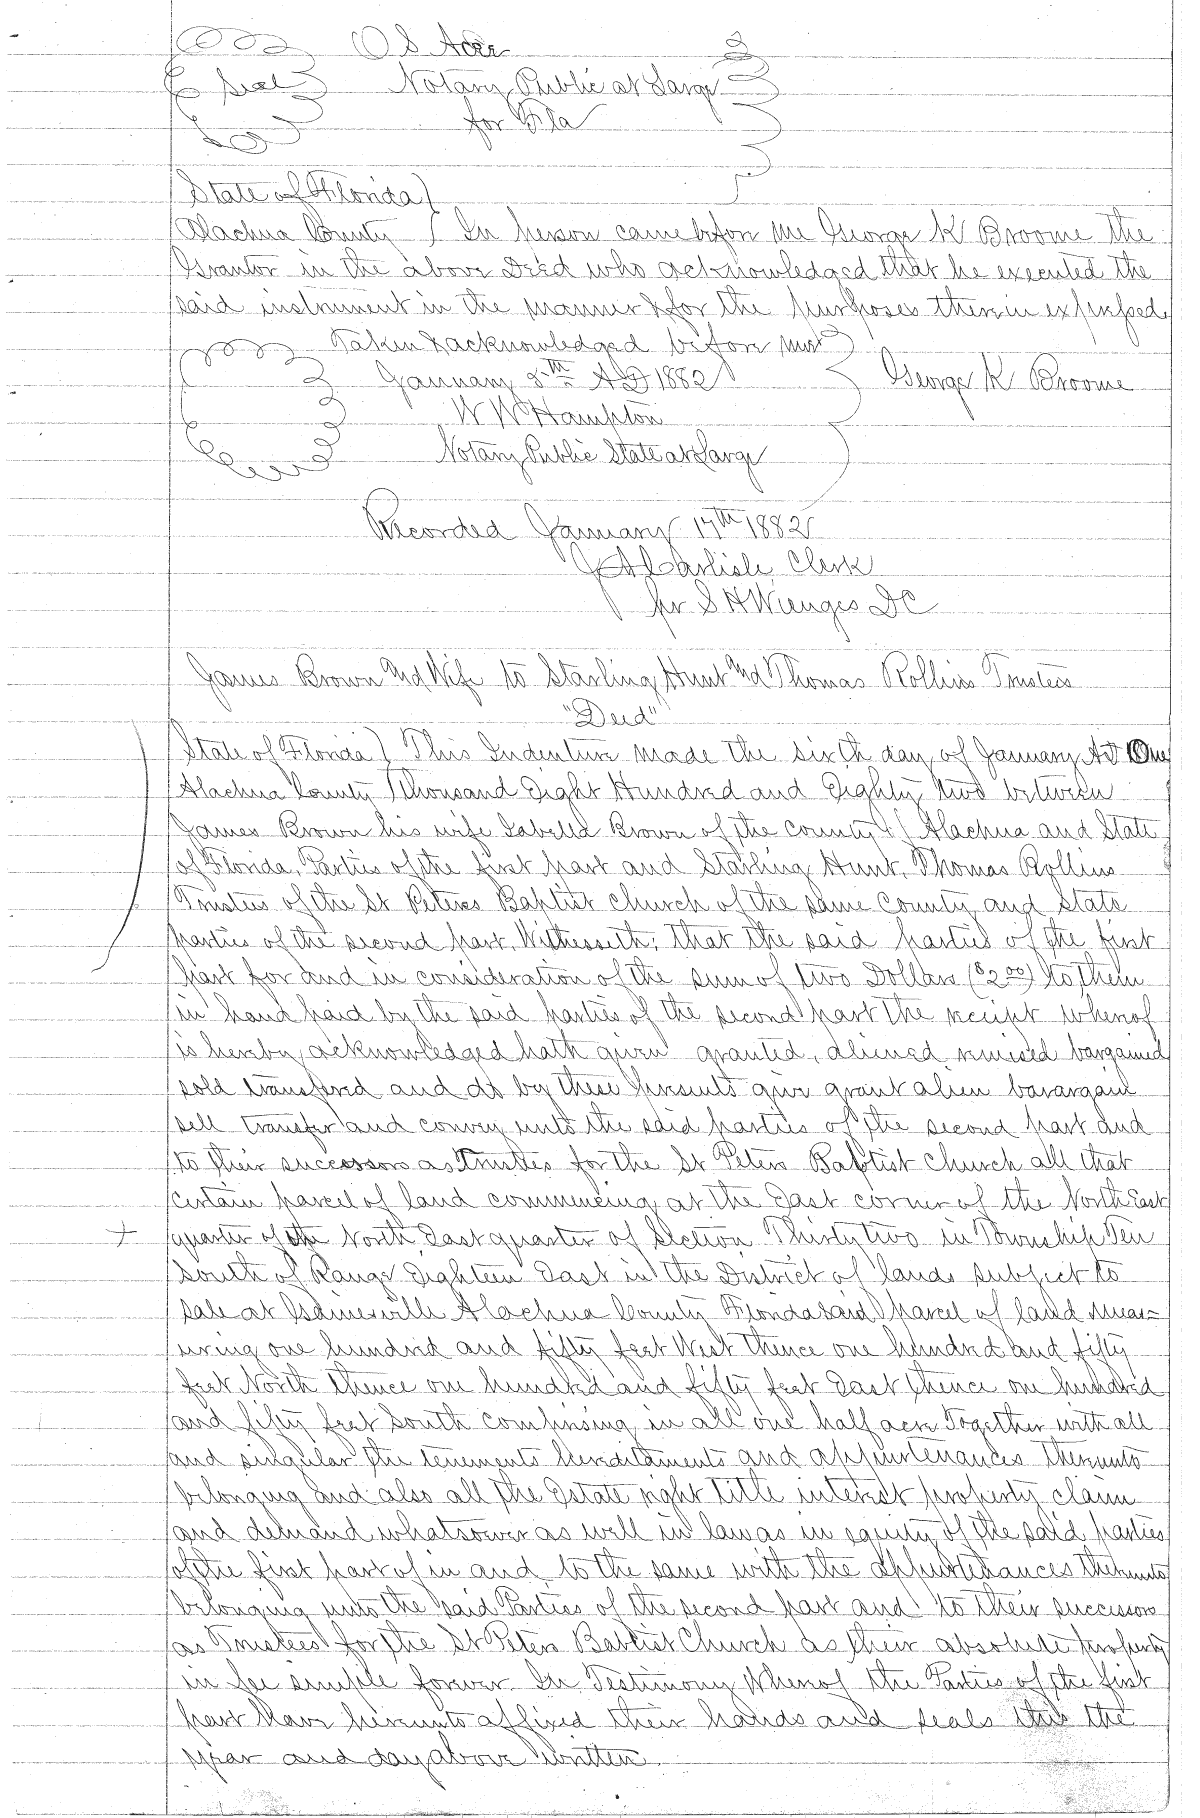 O S Acre
Seal Notary Public at Large
for Fla
State of Florida }
Alachua County } In person came before me George K Broome the
Grantor in the above Deed who acknowledged that he executed the
said instrument in the manner & for the purposes therein expressed
Taken & acknowledged before me
January 2th AD 1882
George K Broome
W W Hampton
Notary Public State at Large
Recorded January 17th 1882
J A Carlisle Clerk
per S H Wienges DC
James Brown and Wife to Starling Hunt and Thomas Rollins Trustees
"Deed"
State of Florida } This Indenture made the sixth day of January AD One
Alachua County } Thousand Eight Hundred and Eighty two between
James Brown his wife Isabella Brown of the county of Alachua and State
of Florida, Parties of the first part and Starling Hunt, Thomas Rollins
Trustees of the St Peters Baptist church of the same County and State
parties of the second part, Witnesseth; that the said parties of the first
part for and in consideration of the sum of two Dollars ($2.00) to them
in hand paid by the said parties of the second part the receipt whereof
is hereby acknowledged hath given granted, aliened remised bargained
sold transfered and do by these presents give grant alien barargain
sell transfer and convey unto the said parties of the second part and
to their successors as Trustees for the St Peters Baptist church all that
certain parcel of land commencing at the East corner of the North East
quarter of the North East quarter of Section Thirty two in Township Ten
South of Range Eighteen East in the District of lands subject to
sale at Gainesville Alachua County Florida said parcel of land meas-
uring one hundred and fifty feet West thence one hundred and fifty
feet North thence one hundred and fifty feet East thence one hundred
and fifty feet South comprising in all one half acre Together with all
and singular the tenements hereditaments and appurtenances thereunto
belonging and also all the Estate right title interest property claim
and demand whatsoever as well in law as in equity of the said parties
of the first part of in and to the same with the appurtenances thereunto
belonging unto the said Parties of the second part and to their successors
as Trustees for the St Peters Baptist Church as their absolute property
in fee simple forever In Testimony Whereof the Parties of the first
part have hereunto affixed their hands and seals this the
year and day above written.